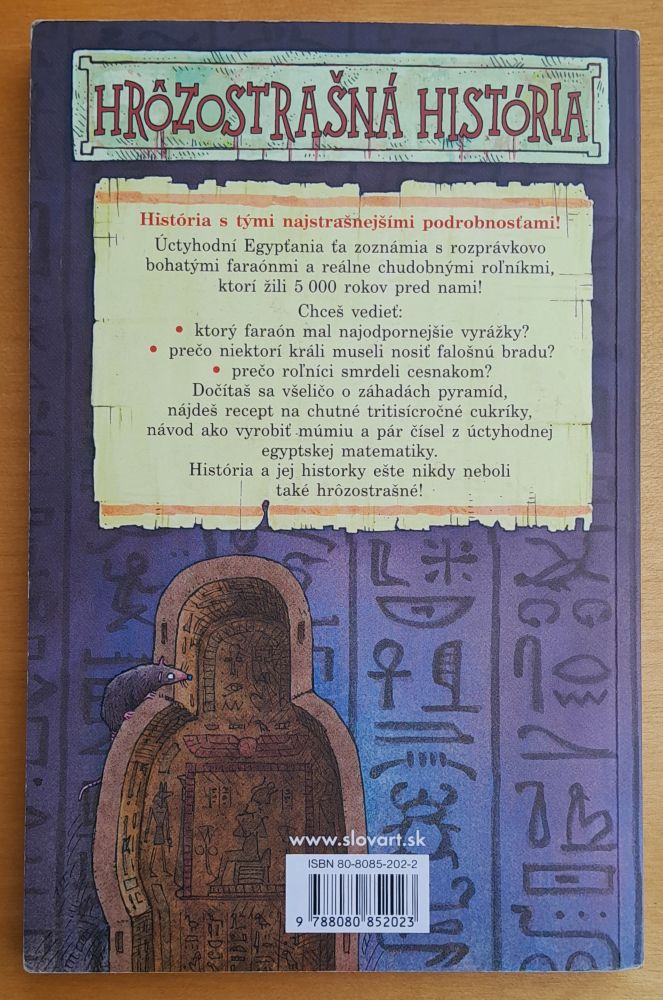 HRÔZOSTRAŠNÁ HISTÓRIA
História s tými najstrašnejšími podrobnosťami!
Úctyhodní Egypťania ťa zoznámia s rozprávkovo
bohatými faraónmi a reálne chudobnými roľníkmi,
ktorí žili 5 000 rokov pred nami!
Chceš vedieť:
• ktorý faraón mal najodpornejšie vyrážky?
• prečo niektorí králi museli nosiť falošnú bradu?
• prečo roľníci smrdeli cesnakom?
Dočítaš sa všeličo o záhadách pyramíd,
nájdeš recept na chutné tritisícročné cukríky,
návod ako vyrobiť múmiu a pár čísel z úctyhodnej
egyptskej matematiky.
História a jej historky ešte nikdy neboli
také hrôzostrašné!
www.slovart.sk
ISBN 80-8085-202-2
9 788080 852023